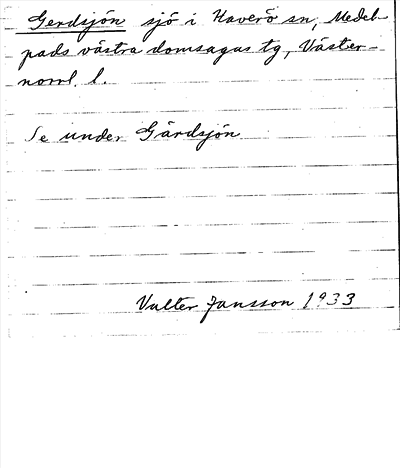 Gerdsjön sjö i Haverö sn, Medel-
pads västra domsagas tg, Väster-
norrl. l.
Se under Gärdsjön
Valter Jansson 1933